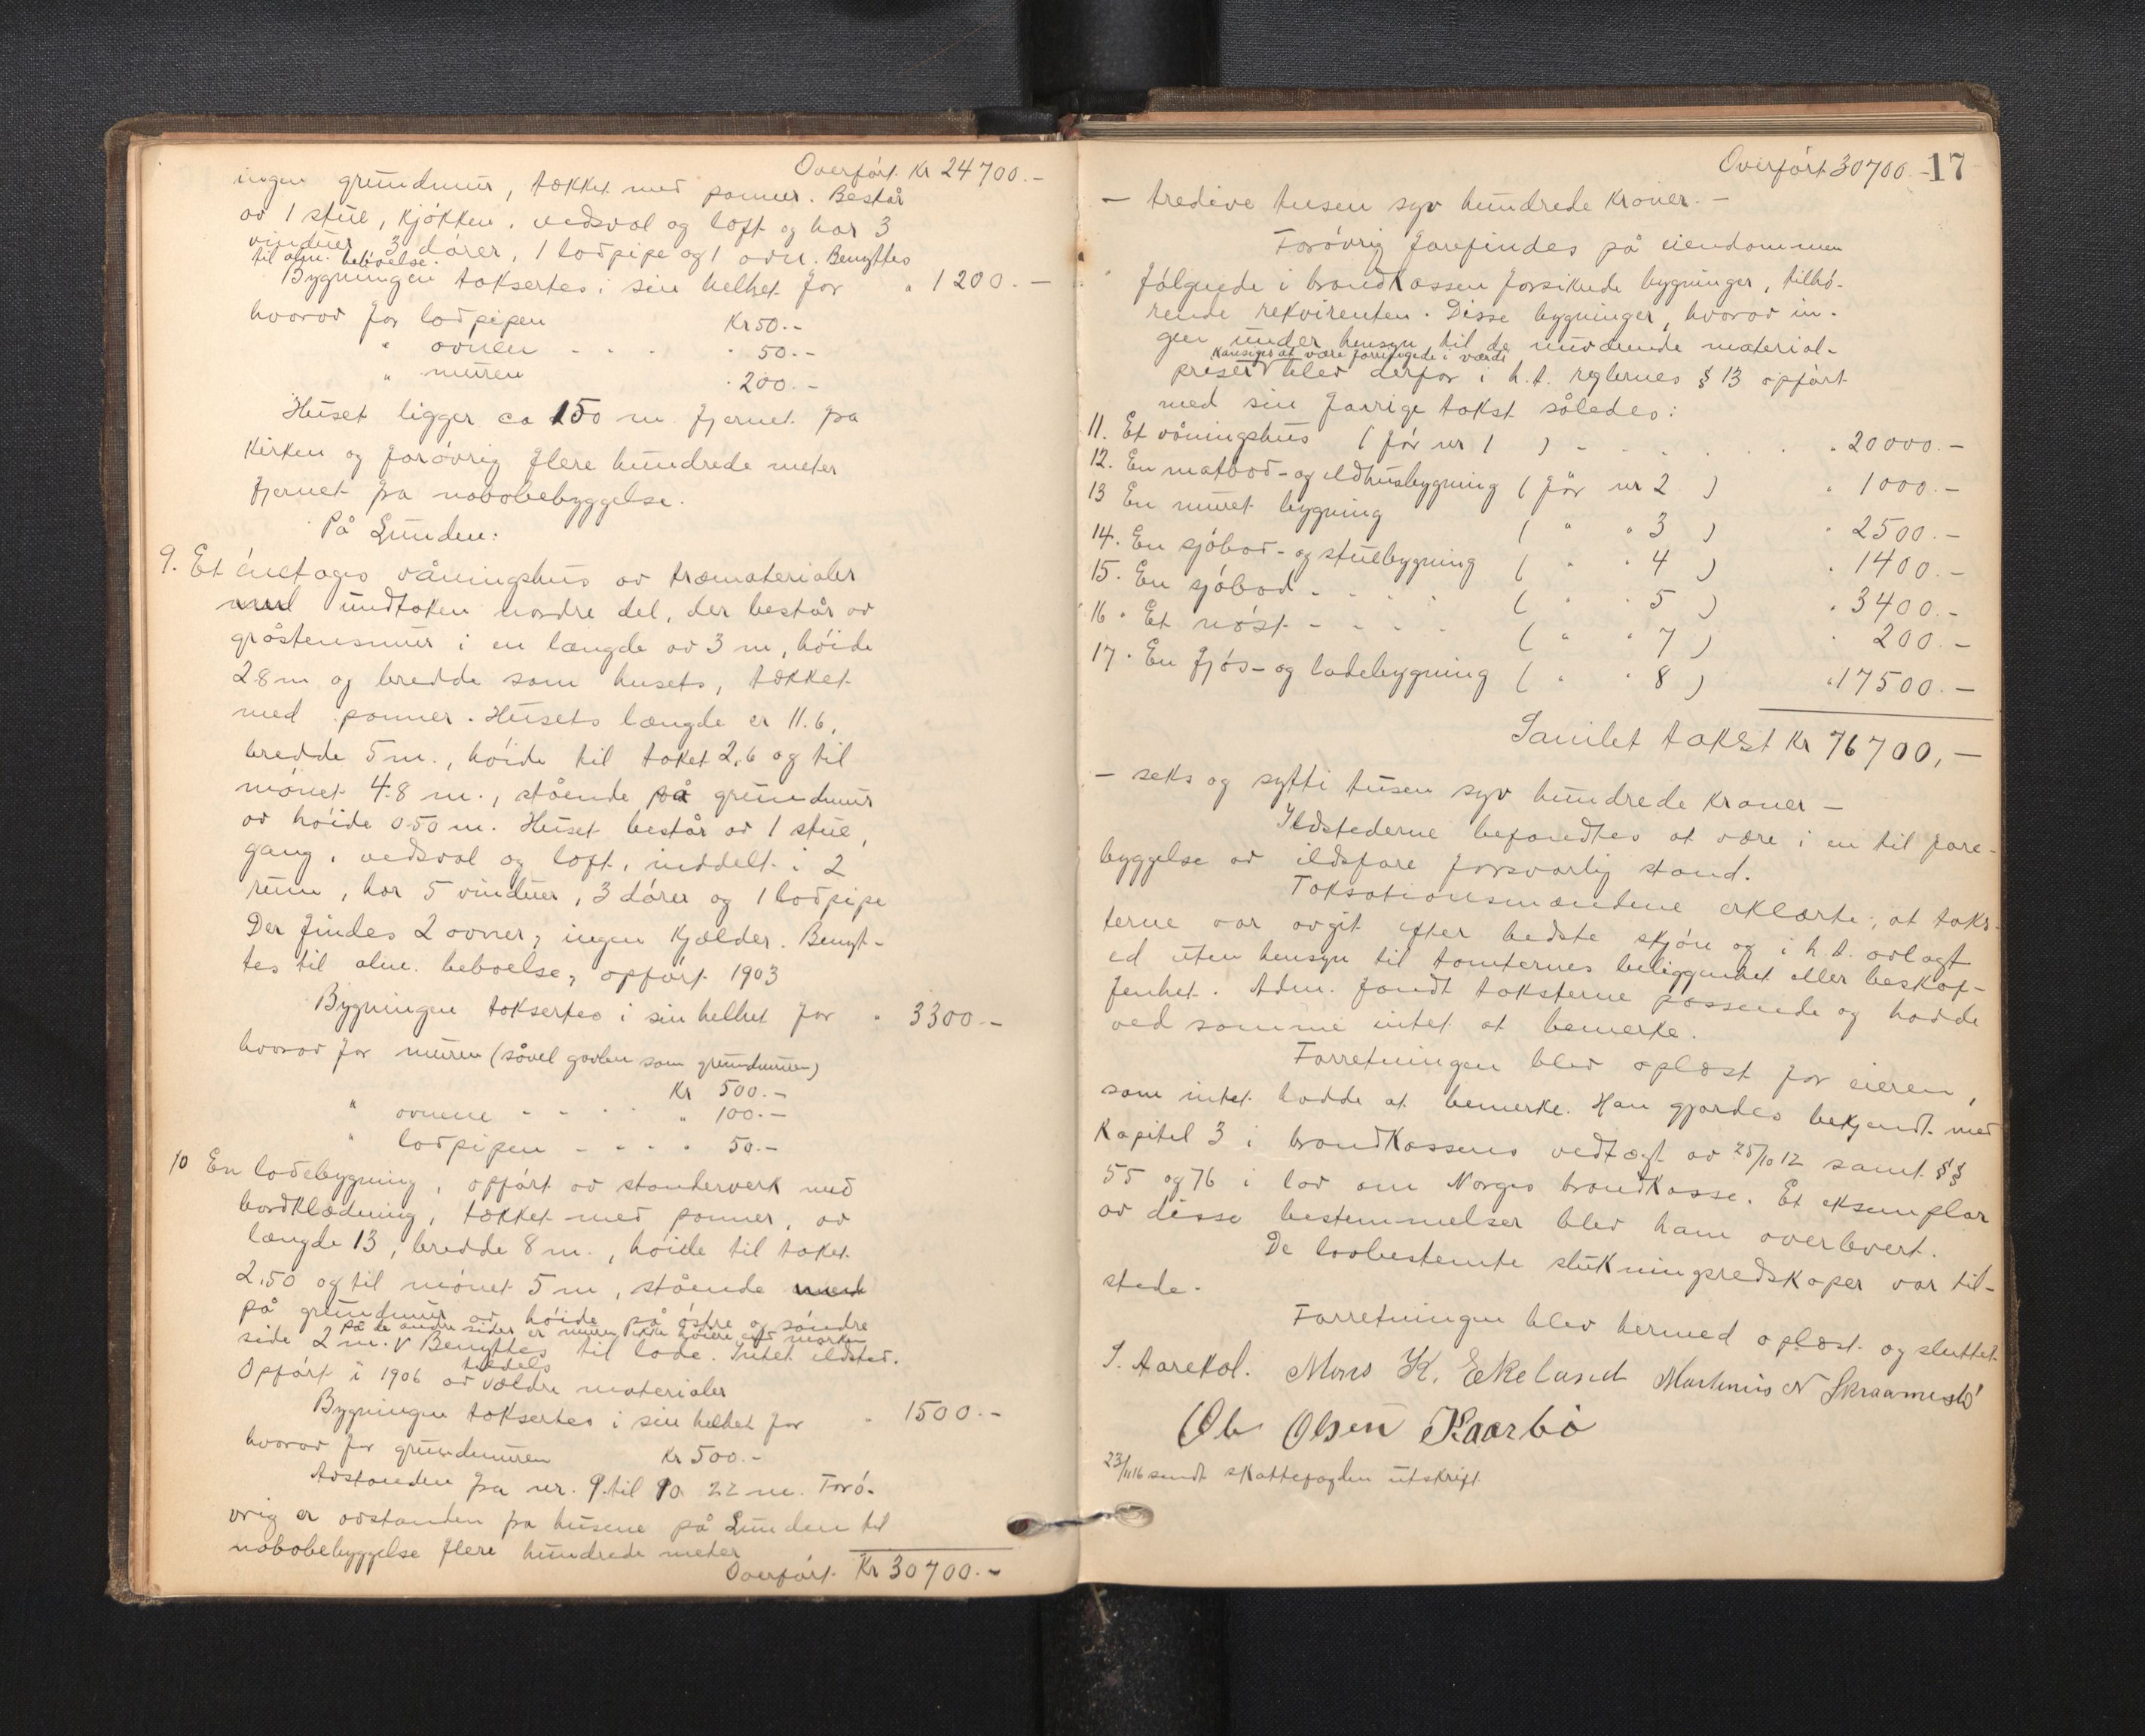 Overført Kr 24700.-
ingen grundmur, tækket med panner. Består
av 1 stue, kjøkken, vedsval og loft og har 3
vinduer, 3 dører, 1 lodpipe og 1 ovn. Benyttes
til alm. beboelse.
Bygningen taksertes i sin helhet for " 1200.-
hvorav for lodpipen Kr 50.-
" ovnen - - - " 50.-
" muren " 200.-
Huset ligger ca 150 m fjernet fra
Kirken og forøvrig flere hundrede meter
fjernet fra nabobebyggelse.
På Lunden:
9. Et énetages våningshus av træmaterialer
undtaken nordre del, der består av
gråstensmur i en længde av 3 m, høide
2.8 m og bredde som husets, tækket
med panner. Husets længde er 11.6,
bredde 5 m., høide til taket 2,6 og til
mønet 4.8 m., stående på grundmur
av høide 0.50 m. Huset består av 1 stue,
gang, vedsval og loft, inddelt i 2
rum, har 5 vinduer, 3 dører og 1 lodpipe
Der findes 2 ovner, ingen kjælder. Benyt-
tes til alm. beboelse, opført 1903
Bygningen taksertes i sin helhet for " 3300.-
hvorav for muren (såvel gavlen som grundmuren)
Kr 500.-
" ovnene - - - " 100.-
" lodpipen - - - " 50.-
10 En ladebygning, opført av stenderverk med
bordklædning, tækket med panner, av
længde 13, bredde 8 m., høide til taket
2.50 og til mønet 5 m, stående med
på grundmur av høide på østre og søndre
på de andre sider er muren ikke høiere end marken
side 2 m. V Benyttes til lade. Intet ildsted.
tildels
Opført i 1906 av V ældre materialer
Bygningen taksertes i sin helhet for " 1500.-
hvorav for grundmuren Kr 500.-
Avstanden fra nr. 9 til 10 22 m. Forø-
vrig er avstanden fra husene på Lunden til
nabobebyggelse flere hundrede meter
Overført Kr 30700.-
Overført 30700.- 17
- tredive tusen syv hundrede kroner. -
Forøvrig forefindes på eiendommen
følgende i brandkassen forsikrede bygninger, tilhø-
rende rekvirenten. Disse bygninger, hvorav in-
gen under hensyn til de nuværende material-
kan siges at være foringede i værdi
priser V blev derfor i h.t. reglernes § 13 opført
med sin forrige takst således:
11. Et våningshus (før nr 1 ) - - - " 20000.-
12. En matbod- og ildhusbygning (før nr 2 ) " 1000.-
13 En muret bygning ( " " 3 ) " 2500.-
14. En sjøbod- og stuebygning ( " " 4 ) " 1400.-
15. En sjøbod - - - - ( " " 5 ) " 3400.-
16. Et nøst - - - - ( " " 7 ) " 200.-
17. En fjøs- og ladebygning ( " " 8 ) " 17500.-
Samlet takst Kr 76700,-
- seks og sytti tusen syv hundrede kroner -
Ildstederne befandtes at være i en til fore-
byggelse av ildsfare forsvarlig stand.
Taksationsmændene erklærte, at taks-
terne var avgit efter bedste skjøn og i h.t. avlagt
ed uten hensyn til tomternes beliggenhet eller beskaf-
fenhet. Adm. fandt taksterne passende og hadde
ved samme intet at bemerke.
Forretningen blev oplæst for eieren,
som intet hadde at bemerke. Han gjordes bekjendt med
Kapitel 3 i brandkassens vedtægt av 25/10 12 samt §§
55 og 76 i lov om Norges brandkasse. Et eksemplar
av disse bestemmelser blev ham overlevert.
De lovbestemte slukningsredskaper var til-
stede.
Forretningen blev hermed oplæst og sluttet
S. Aarekol. Mons K. Ekeland Martinius N Skraamestø
Ole Olsen Kaarbø
23/11 16 sendt skattefogden utskrift